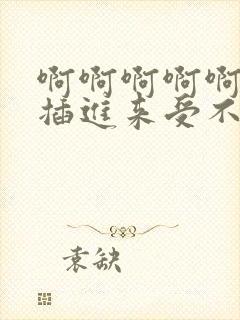 啊啊啊啊啊
插进来受不
袁缺